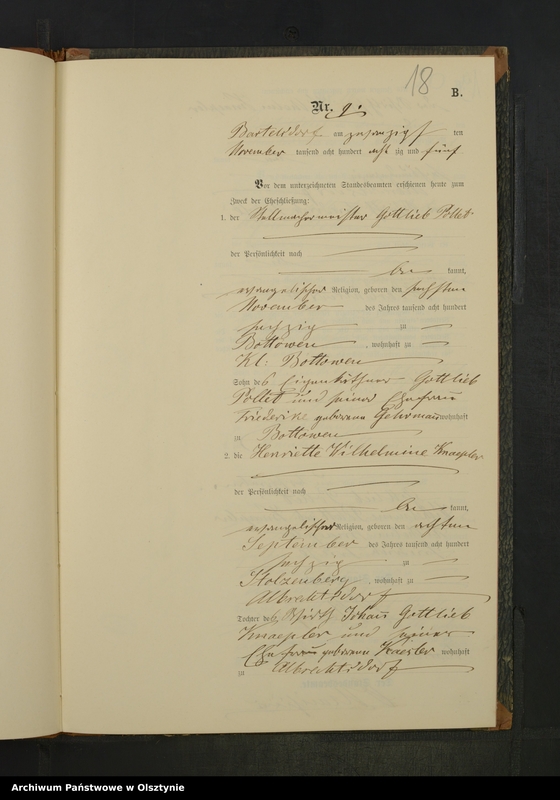 18
B.
Nr. 9.
Bartelsdorf am zwanzigst ten
November tausend acht hundert acht zig und fünf
Vor dem unterzeichneten Standesbeamten erschienen heute zum
Zweck der Eheschließung:
1. der Stellmachermeister Gottlieb Pollet
der Persönlichkeit nach
be kannt,
evangelischer Religion, geboren den sechsten
November des Jahres tausend acht hundert
sechzig zu
Bottowen, wohnhaft zu
Kl: Bottowen
Sohn des Eigenkäthner Gottlieb
Pollet und seiner Ehefrau
Friederike geborene Gehrmann wohnhaft
zu Bottowen
2. die Henriette Wilhelmine Knaepler
der Persönlichkeit nach
be kannt,
evangelischer Religion, geboren den achten
September des Jahres tausend acht hundert
sechzig zu
Stolzenberg, wohnhaft zu
Albrechtsdorf
Tochter des Wirth Johann Gottlieb
Knaepler und seiner
Ehefrau geborene Kaesler wohnhaft
zu Albrechtsdorf
Archiwum Państwowe w Olsztynie